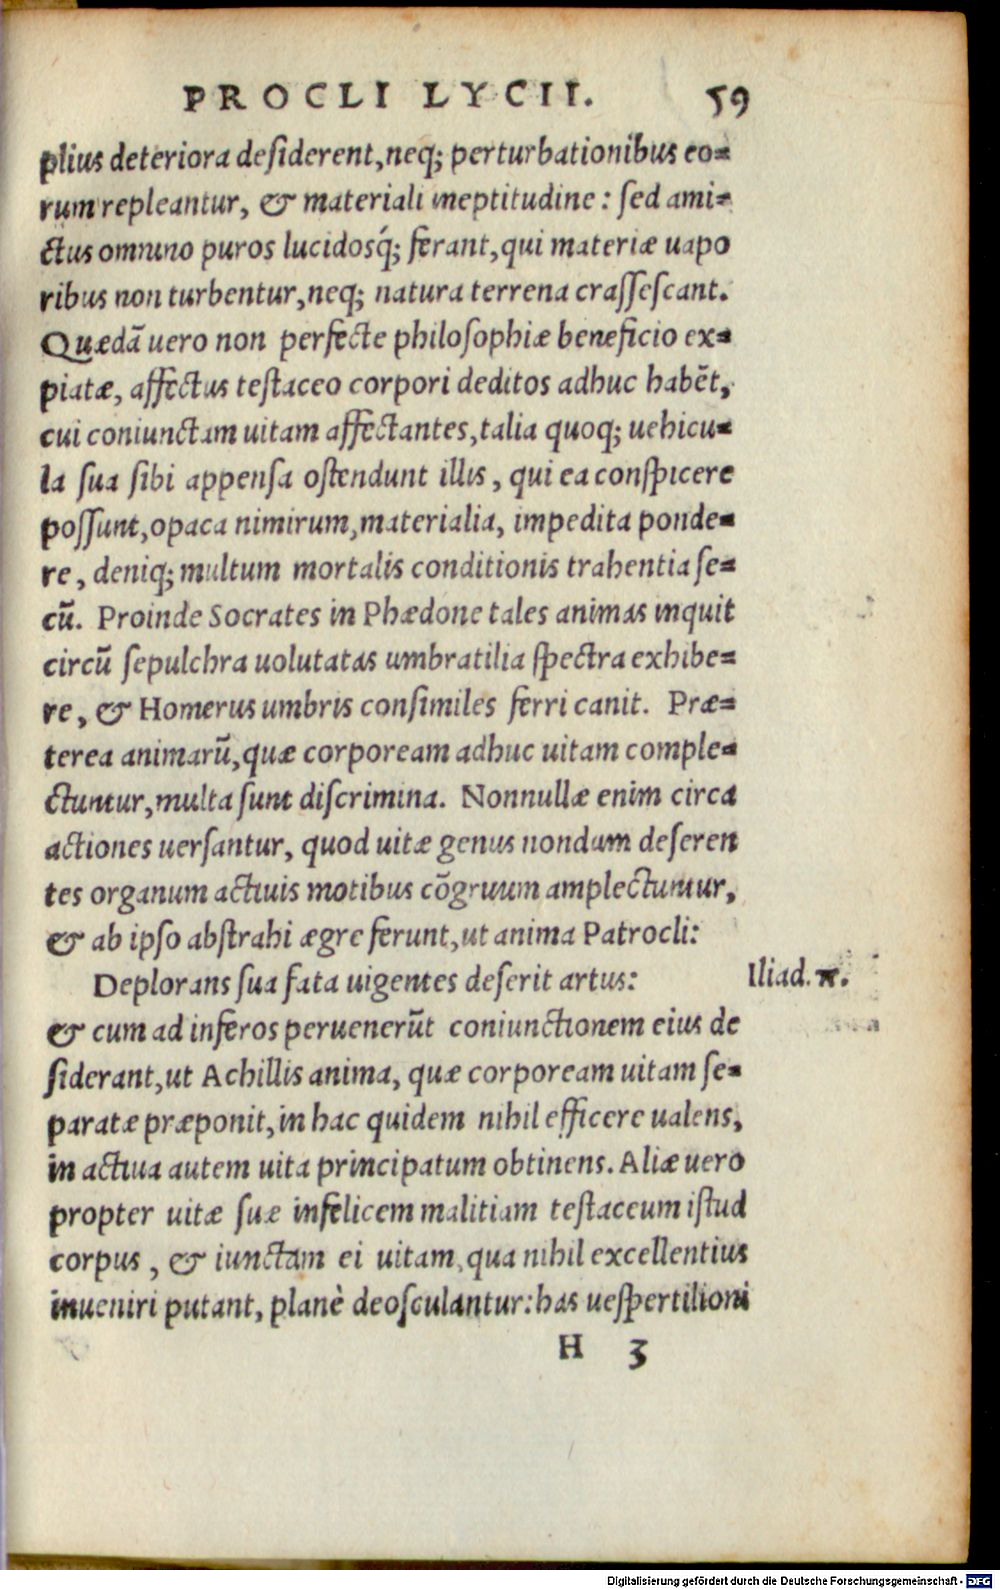 PROCLI LYCII. 59
plius deteriora desiderent, neq; perturbationibus eo=
rum repleantur, & materiali ineptitudine: sed ami=
ctus omnino puros lucidosq́; ferant, qui materiæ uapo
ribus non turbentur, neq; natura terrena crassescant.
Quædā uero non perfecte philosophiæ beneficio ex=
piatæ, affectus testaceo corpori deditos adhuc habēt,
cui coniunctam uitam affectantes, talia quoq; uehicu=
la sua sibi appensa ostendunt illis, qui ea conspicere
possunt, opaca nimirum, materialia, impedita ponde=
re, deniq; multum mortalis conditionis trahentia se=
cū. Proinde Socrates in Phædone tales animas inquit
circū sepulchra uolutatas umbratilia spectra exhibe=
re, & Homerus umbris consimiles ferri canit. Præ=
terea animarū, quæ corpoream adhuc uitam comple=
ctuntur, multa sunt discrimina. Nonnullæ enim circa
actiones uersantur, quod uitæ genus nondum deseren
tes organum actiuis motibus cōgruum amplectuntur,
& ab ipso abstrahi ægre ferunt, ut anima Patrocli:
Deplorans sua fata uigentes deserit artus:
Iliad. π.
& cum ad inferos peruenerūt coniunctionem eius de
siderant, ut Achillis anima, quæ corpoream uitam se=
paratæ præponit, in hac quidem nihil efficere ualens,
in actiua autem uita principatum obtinens. Aliæ uero
propter uitæ suæ infelicem malitiam testaceum istud
corpus, & iunctam ei uitam, qua nihil excellentius
inueniri putant, planè deosculantur: has uespertilioni
H 3
Digitalisierung gefördert durch die Deutsche Forschungsgemeinschaft - DFG